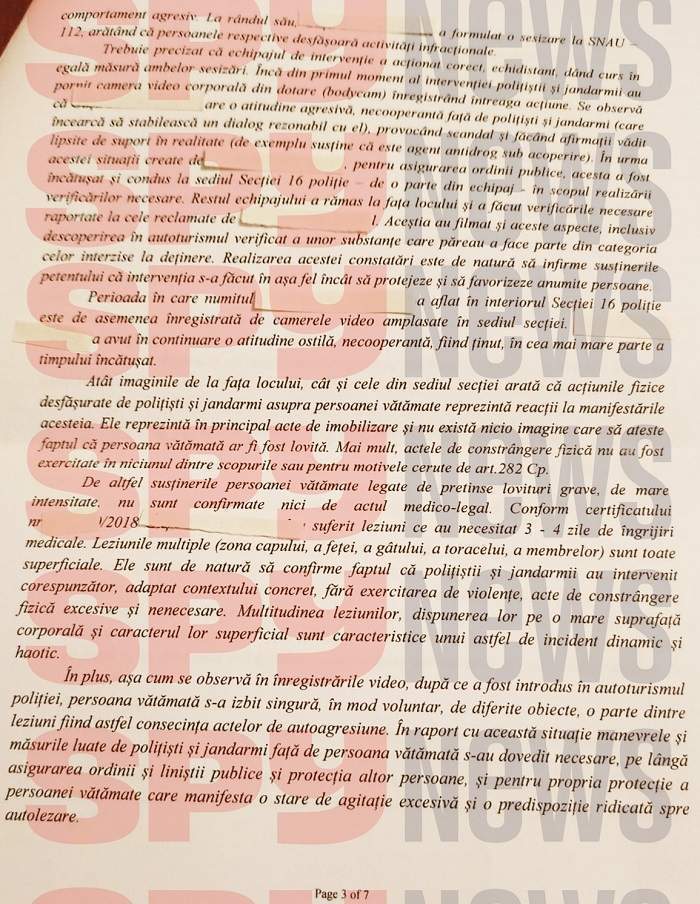 comportament agresiv. La rândul său, a formulat o sesizare la SNAU –
112, arătând că persoanele respective desfășoară activități infracționale.
Trebuie precizat că echipajul de intervenție a acționat corect, echidistant, dând curs în
egală măsură ambelor sesizări. Încă din primul moment al intervenției polițiștii și jandarmii au
pornit camera video corporală din dotare (bodycam) înregistrând întreaga acțiune. Se observă
că are o atitudine agresivă, necooperantă față de polițiști și jandarmi (care
încearcă să stabilească un dialog rezonabil cu el), provocând scandal și făcând afirmații vădit
lipsite de suport în realitate (de exemplu susține că este agent antidrog sub acoperire). În urma
acestei situații create de , pentru asigurarea ordinii publice, acesta a fost
încătușat și condus la sediul Secției 16 poliție – de o parte din echipaj - în scopul realizării
verificărilor necesare. Restul echipajului a rămas la fața locului și a făcut verificările necesare
raportate la cele reclamate de l. Aceștia au filmat și aceste aspecte, inclusiv
descoperirea în autoturismul verificat a unor substanțe care păreau a face parte din categoria
celor interzise la deținere. Realizarea acestei constatări este de natură să infirme susținerile
petentului că intervenția s-a făcut în așa fel încât să protejeze și să favorizeze anumite persoane.
Perioada în care numitul a aflat în interiorul Secției 16 poliție
este de asemenea înregistrată de camerele video amplasate în sediul secției.
a avut în continuare o atitudine ostilă, necooperantă, fiind ținut, în cea mai mare parte a
timpului încătușat.
Atât imaginile de la fața locului, cât și cele din sediul secției arată că acțiunile fizice
desfășurate de polițiști și jandarmi asupra persoanei vătămate reprezintă reacții la manifestările
acesteia. Ele reprezintă în principal acte de imobilizare și nu există nicio imagine care să ateste
faptul că persoana vătămată ar fi fost lovită. Mai mult, actele de constrângere fizică nu au fost
exercitate în niciunul dintre scopurile sau pentru motivele cerute de art.282 Cp.
De altfel susținerile persoanei vătămate legate de pretinse lovituri grave, de mare
intensitate, nu sunt confirmate nici de actul medico-legal. Conform certificatului
nr /2018 suferit leziuni ce au necesitat 3 - 4 zile de îngrijiri
medicale. Leziunile multiple (zona capului, a feței, a gâtului, a toracelui, a membrelor) sunt toate
superficiale. Ele sunt de natură să confirme faptul că polițiștii și jandarmii au intervenit
corespunzător, adaptat contextului concret, fără exercitarea de violențe, acte de constrângere
fizică excesive și nenecesare. Multitudinea leziunilor, dispunerea lor pe o mare suprafață
corporală și caracterul lor superficial sunt caracteristice unui astfel de incident dinamic și
haotic.
În plus, așa cum se observă în înregistrările video, după ce a fost introdus în autoturismul
poliției, persoana vătămată s-a izbit singură, în mod voluntar, de diferite obiecte, o parte dintre
leziuni fiind astfel consecința actelor de autoagresiune. În raport cu această situație manevrele și
măsurile luate de polițiști și jandarmi față de persoana vătămată s-au dovedit necesare, pe lângă
asigurarea ordinii și liniștii publice și protecția altor persoane, și pentru propria protecție a
persoanei vătămate care manifesta o stare de agitație excesivă și o predispoziție ridicată spre
autolezare.
Page 3 of 7